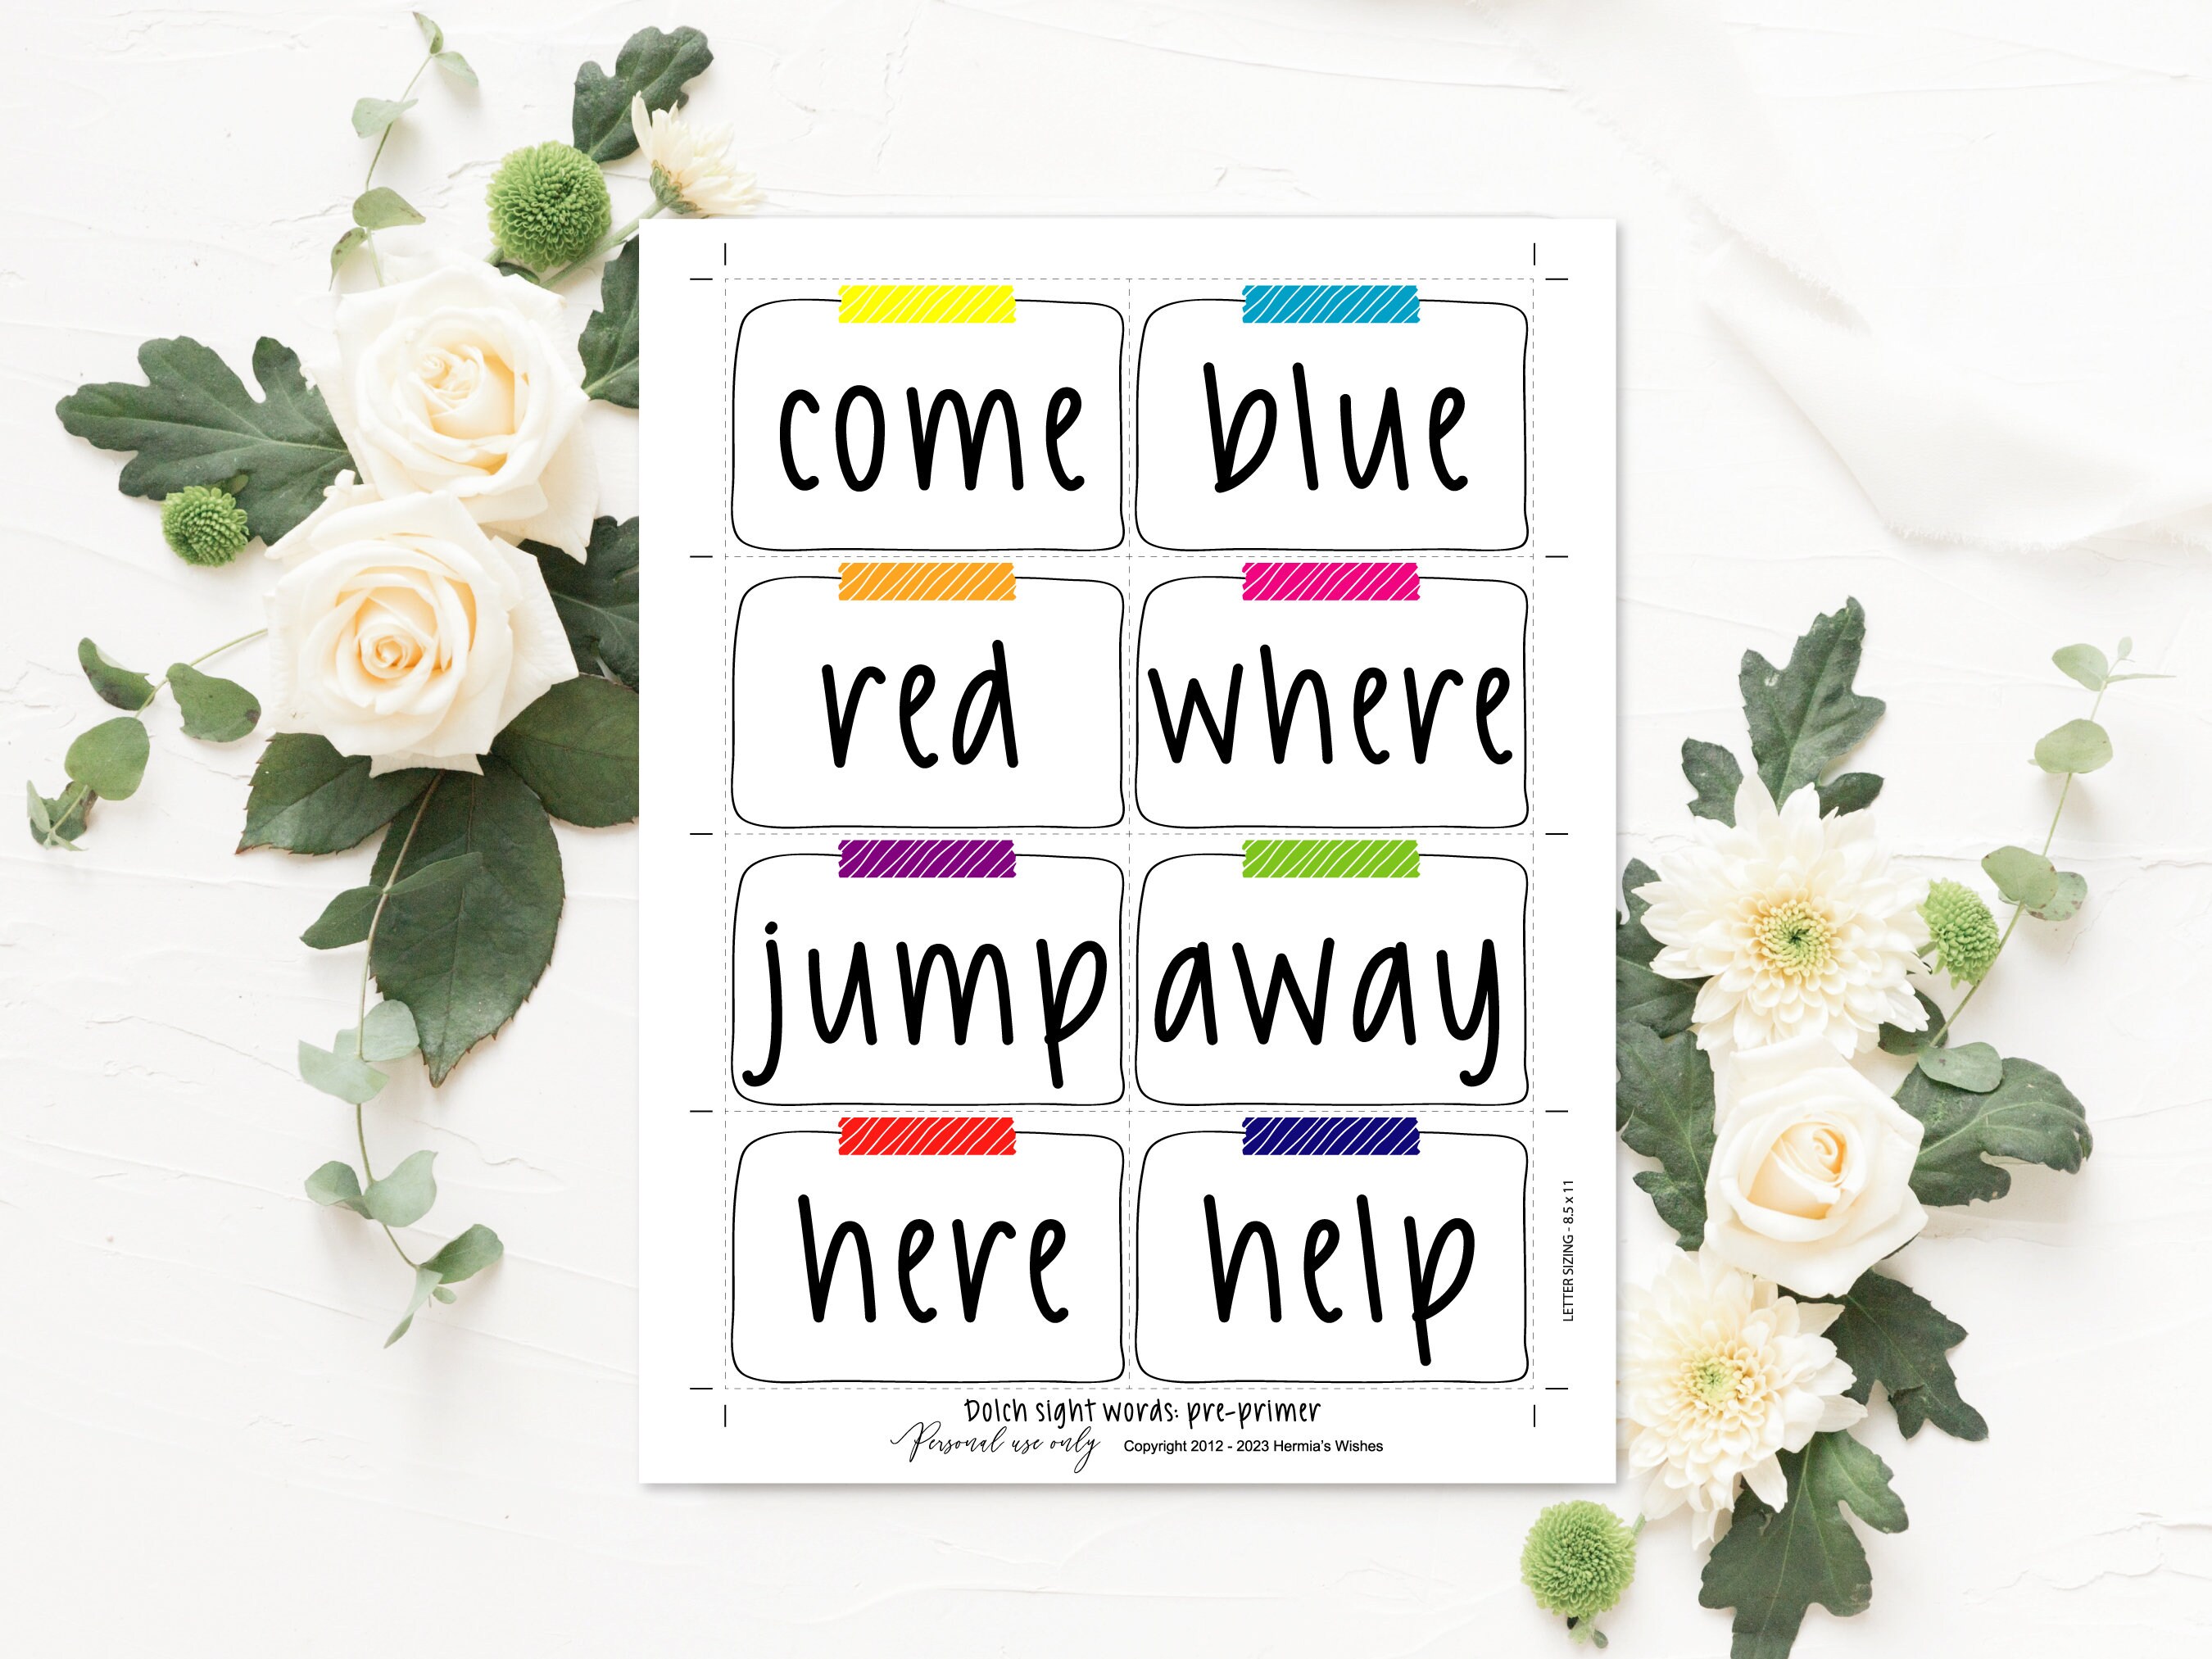 come blue
red where
jump away
here help
LETTER SIZING - 8.5 x 11
Dolch sight words: pre-primer
Personal use only Copyright 2012 - 2023 Hermia's Wishes